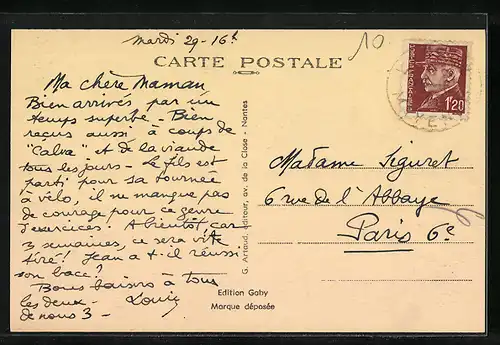 mardi 29 - 16h
10
CARTE POSTALE
Ma chère Maman,
Bien arrivés par un
temps superbe - Bien
reçus aussi à coups de
"Calva" et de la viande
tous les jours - Le fils est
parti pour sa tournée
à vélo, il ne manque pas
de courage pour ce genre
d'exercices. A bientôt, car
3 semaines, ce sera vite
tiré! Jean a-t-il réussi
son bacc?
Bons baisers à tous
les deux - Louis
de nous 3 -
G. Artaud, éditeur, av. de la Close - Nantes
Edition Gaby
Marque déposée
1f20
Madame Siguret
6 rue de l'Abbaye
Paris 6e